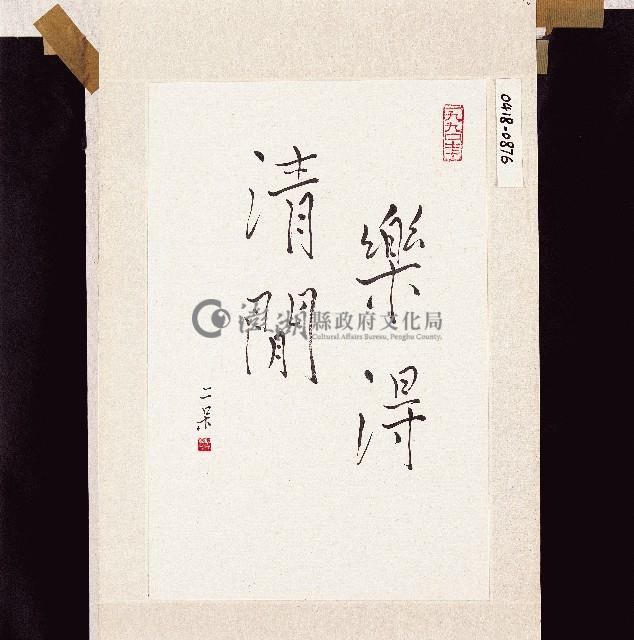 樂得
清閒
二呆
0418-0876
澎湖縣政府文化局
Cultural Affairs Bureau, Penghu County.